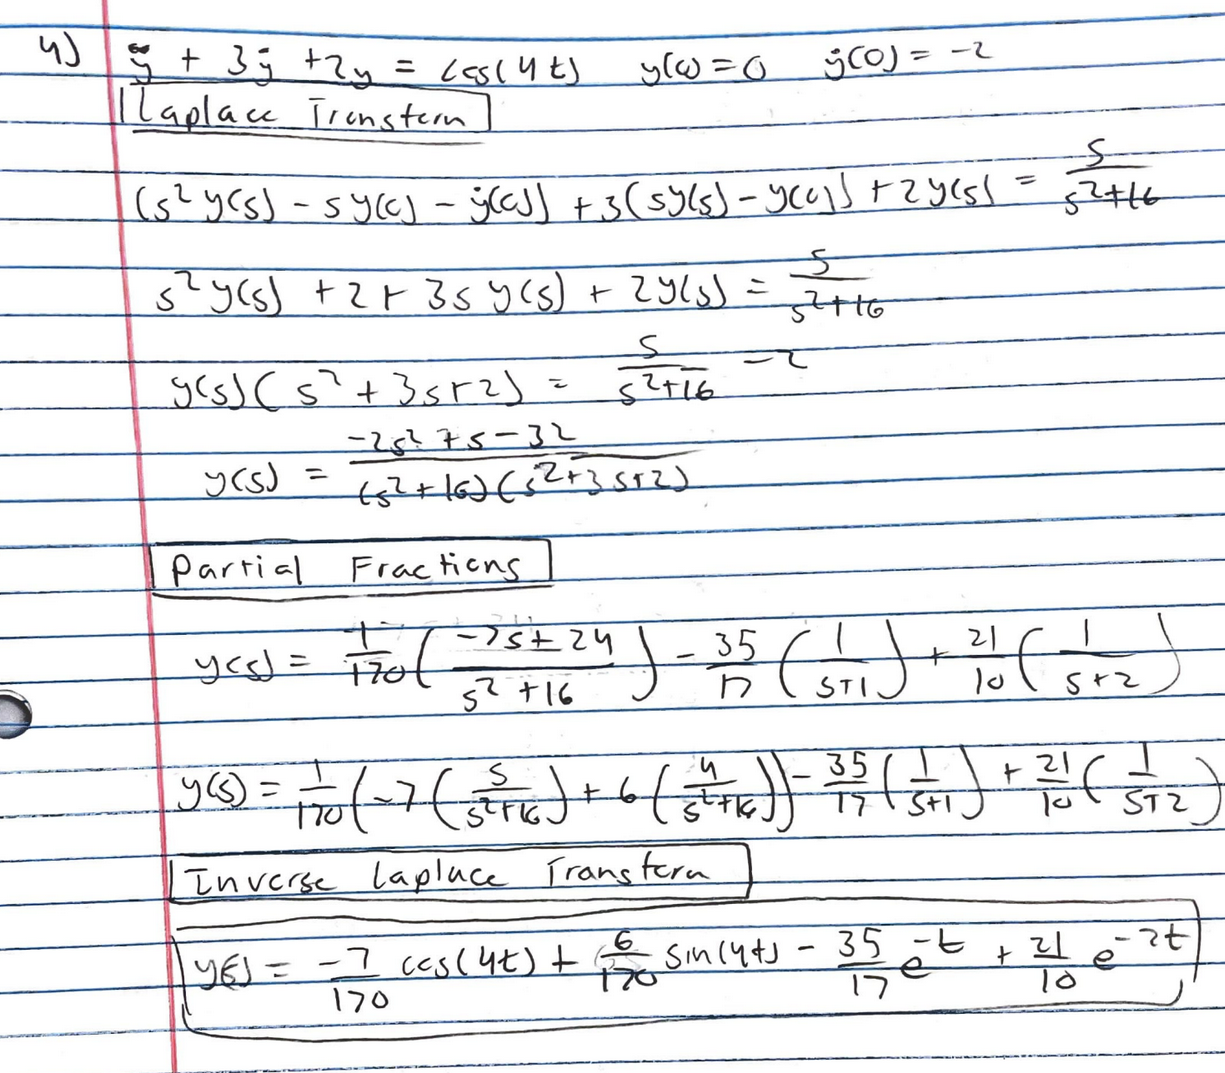 4) ÿ + 3ẏ + 2y = cos(4t) y(0) = 0 ẏ(0) = -2
Laplace Transform
(s²y(s) - sy(0) - ẏ(0)) + 3(sy(s) - y(0)) + 2y(s) = s/(s²+16)
s²y(s) + 2 + 3sy(s) + 2y(s) = s/(s²+16)
y(s)(s² + 3s + 2) = s/(s²+16) - 2
y(s) = (-2s² + s - 32)/((s²+16)(s²+3s+2))
Partial Fractions
y(s) = 1/170 ((-7s + 24)/(s²+16)) - 35/17 (1/(s+1)) + 21/10 (1/(s+2))
y(s) = 1/170 (-7(s/(s²+16)) + 6(4/(s²+16))) - 35/17 (1/(s+1)) + 21/10 (1/(s+2))
Inverse Laplace Transform
y(t) = -7/170 cos(4t) + 6/170 sin(4t) - 35/17 e^-t + 21/10 e^-2t